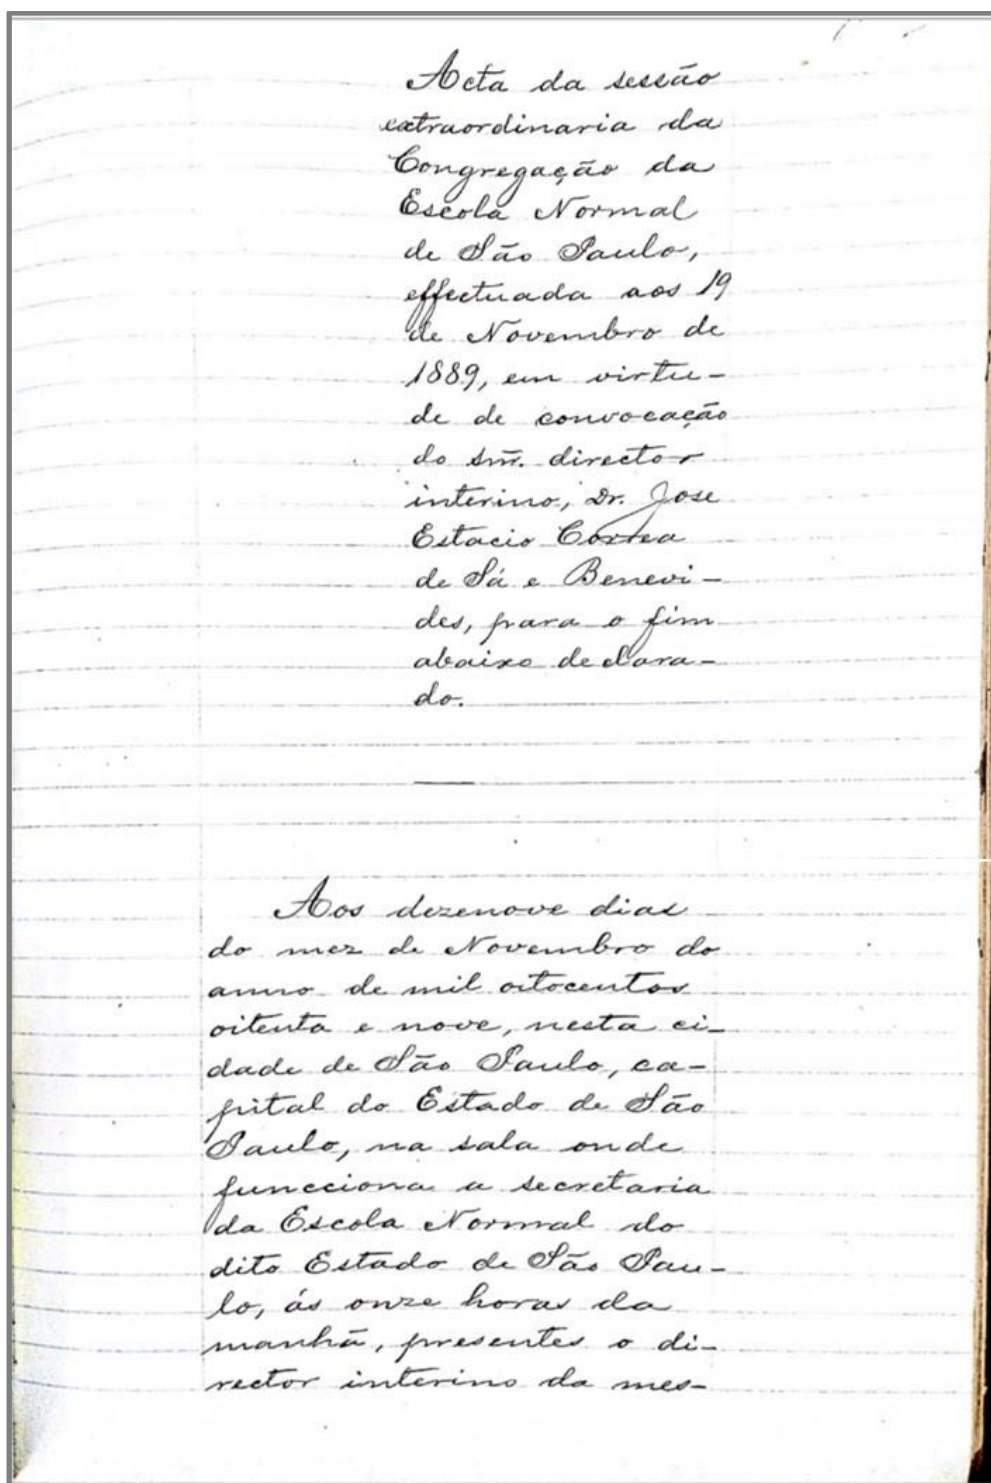 Acta da sessão
extraordinaria da
Congregação da
Escola Normal
de São Paulo,
effectuada aos 19
de Novembro de
1889, em virtu-
de de convocação
do snr. director
interino, Dr. Jose
Estacio Corrêa
de Sá e Benevi-
des, para o fim
abaixo declara-
do.
Aos dezenove dias
do mez de Novembro do
anno de mil oitocentos
oitenta e nove, nesta ci-
dade de São Paulo, ca-
pital do Estado de São
Paulo, na sala onde
funcciona a secretaria
da Escola Normal do
dito Estado de São Pau-
lo, ás onze horas da
manhã, presentes o di-
rector interino da mes-